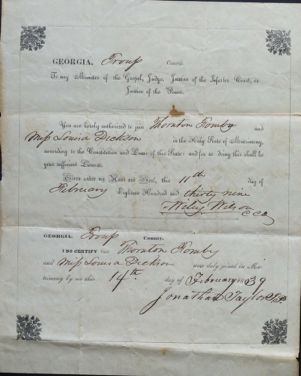 GEORGIA, Troup County.
To any Minister of the Gospel, Judge, Justice of the Inferior Court, or
Justice of the Peace.
You are hereby authorized to join Thornton Fomby and
Miss Louisa Dickson in the Holy State of Matrimony,
according to the Constitution and Laws of this State: and for so doing this shall be
your sufficient License.
Given under my Hand and Seal, this 11th day of
February Eighteen Hundred and thirty nine
Wiley Wilson CCO
GEORGIA, Troup County.
I DO CERTIFY that Thornton Fomby
and Miss Louisa Dickson were duly joined in Mat-
rimony by me this 14th day of February 1839
Jonathan Taylor